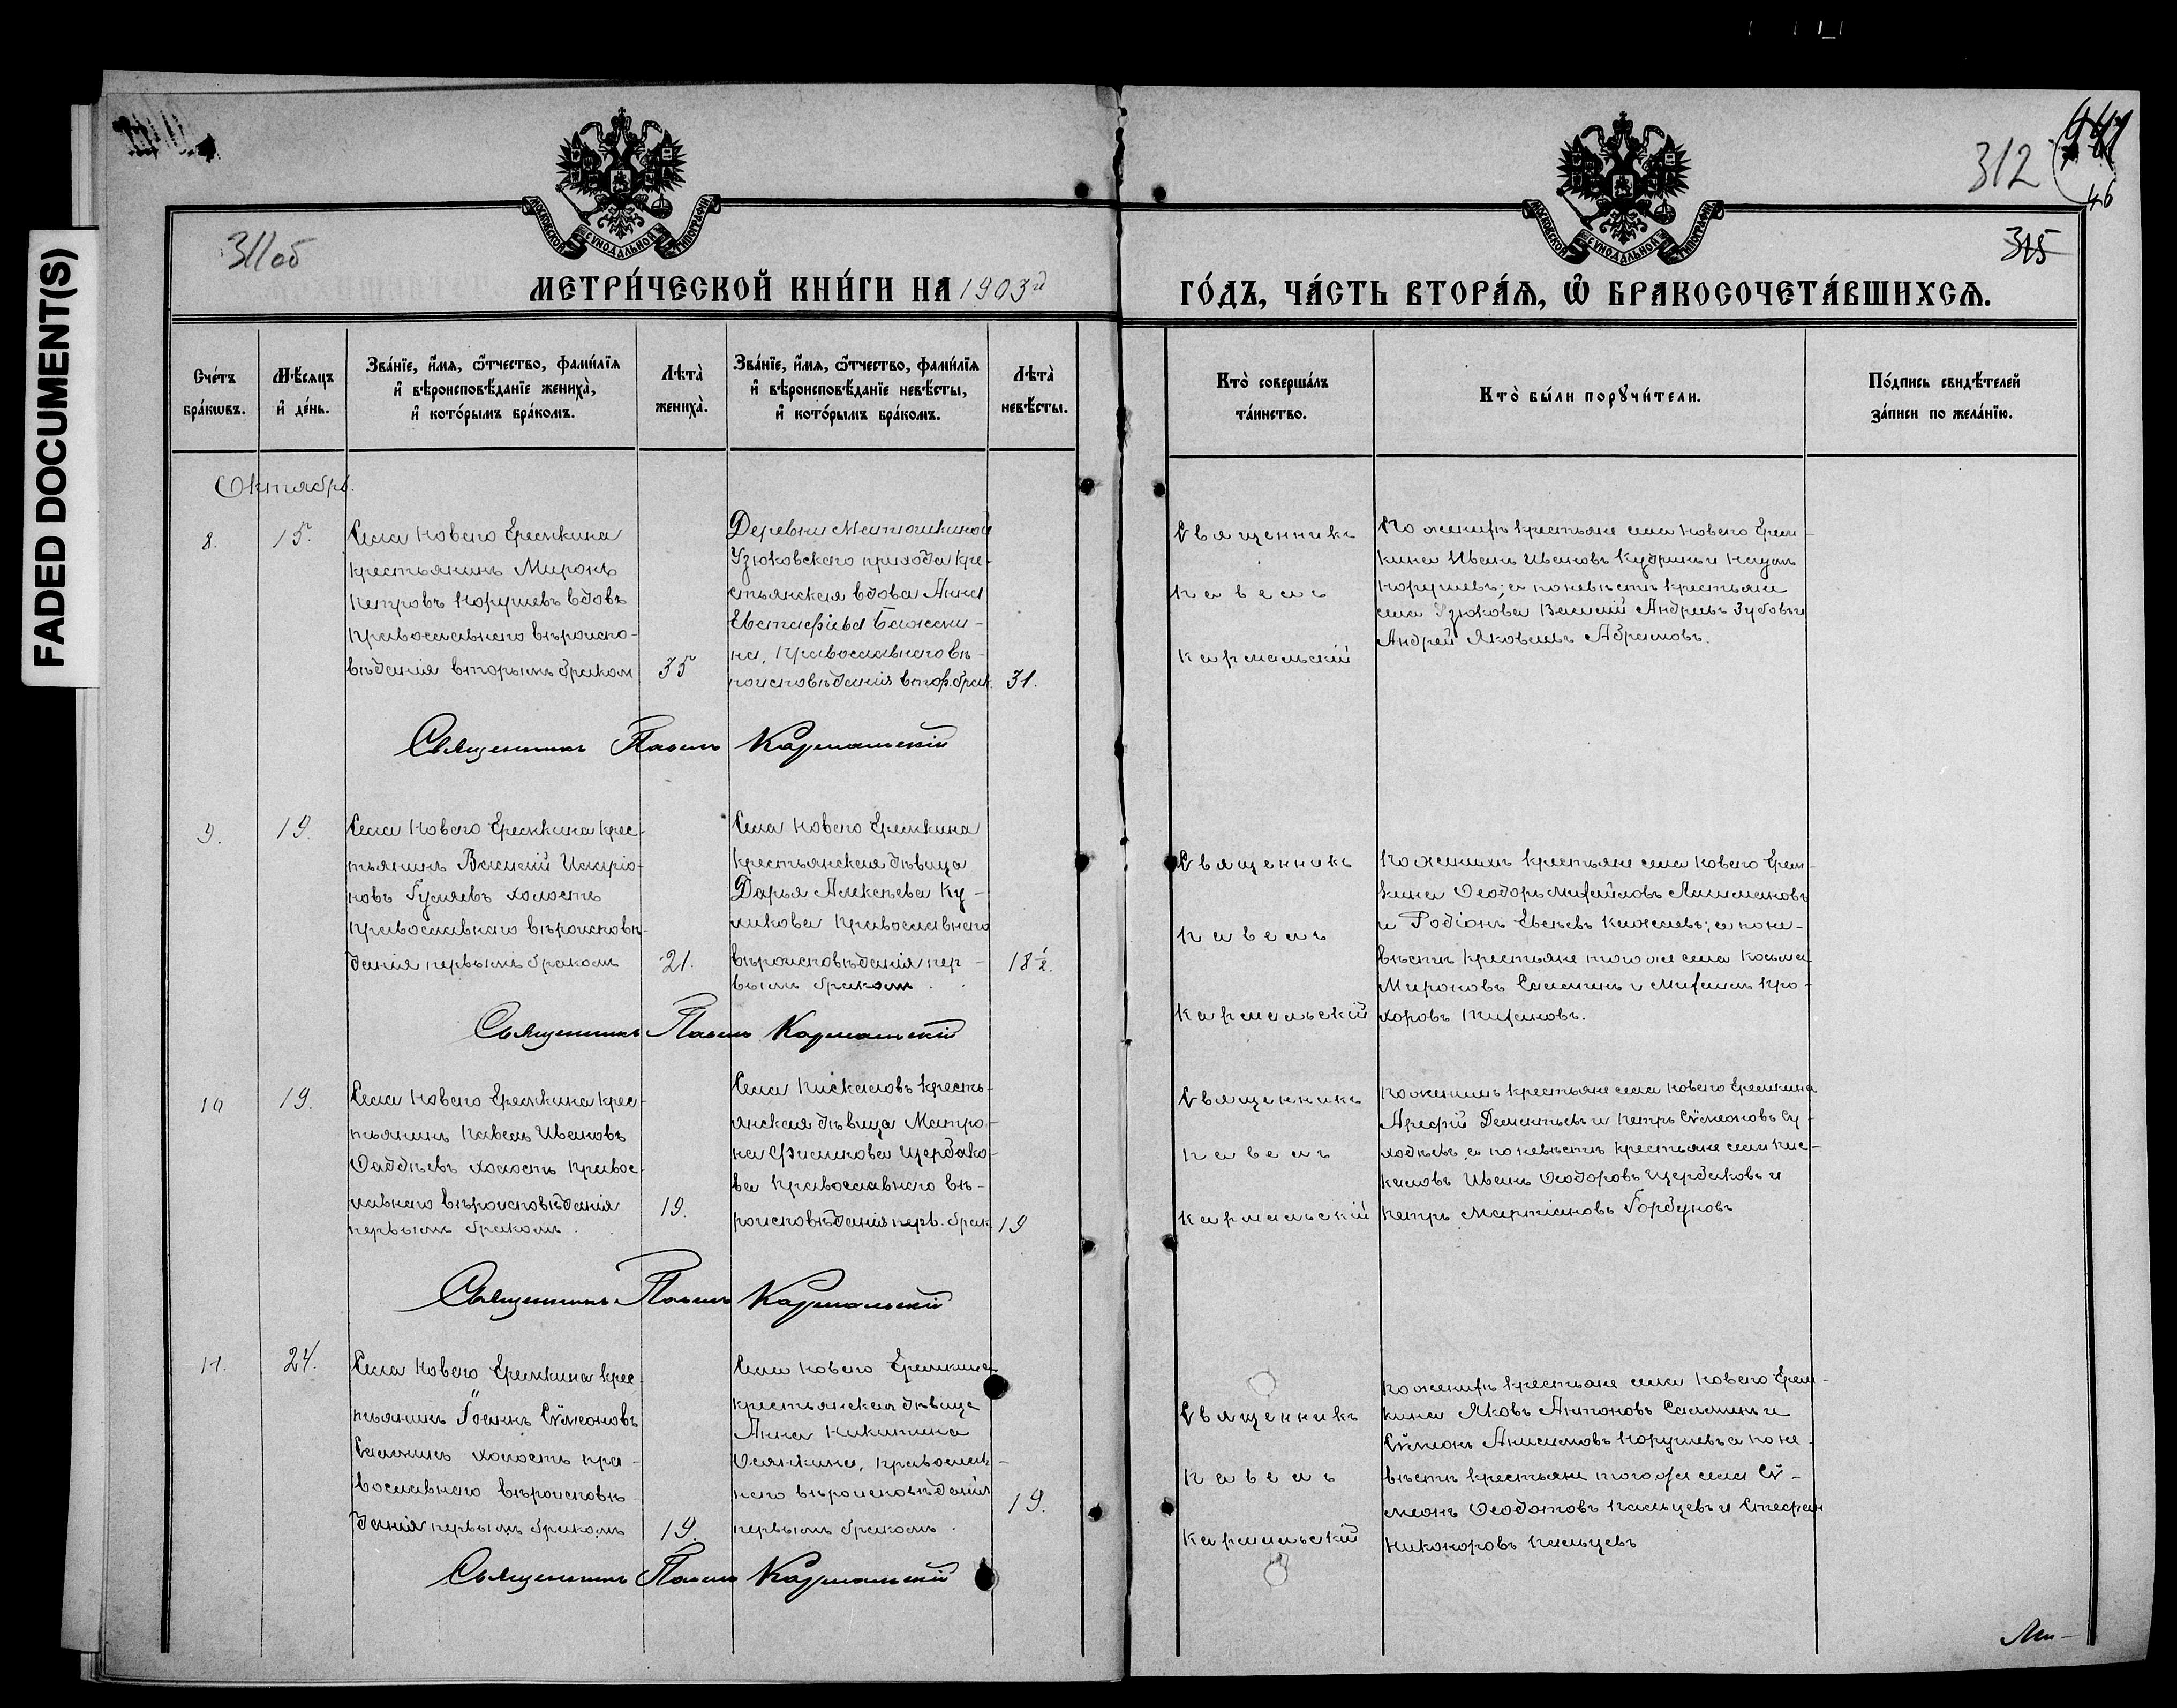 FADED DOCUMENT(S)
311об
312
46
315
МОСКОВСКОЙ СѴНОДАЛЬНОЙ ТИПОГРАФІИ
МОСКОВСКОЙ СѴНОДАЛЬНОЙ ТИПОГРАФІИ
МЕТРИ́ЧЕСКОЙ КНИ́ГИ НА 1903й
ГО́ДЪ, ЧА́СТЬ ВТОРА́Ѧ, Ѽ БРАКОСОЧЕТА́ВШИХСѦ.
Сче́тъ
бра́кѡвъ.
Мѣ́сяцъ
и҆ де́нь.
Зва́нїе, и҆́мѧ, ѻ҆́тчество, фами́лїѧ
и҆ вѣроисповѣ́данїе жениха̀,
и҆ кото́рымъ бра́комъ.
Лѣта̀
жениха̀.
Зва́нїе, и҆́мѧ, ѻ҆́тчество, фами́лїѧ
и҆ вѣроисповѣ́данїе невѣ́сты,
и҆ кото́рымъ бра́комъ.
Лѣта̀
невѣ́сты.
Кто̀ соверша́лъ
та́инство.
Кто̀ бы́ли порꙋчи́тели.
По́дпись свидѣ́телей
за́писи по жела́нїю.
Октябрь.
8.
15.
Села Новаго Еремкина
крестьянинъ Миронъ
Петровъ Порушевъ вдовъ
православнаго вѣроиспо-
вѣданія вторымъ бракомъ
35
Деревни Матюшкиной
Узюковскаго прихода кре-
стьянская вдова Анна
Евстафіева Бажени-
на, православнаго вѣ-
роисповѣданія втор. брак.
31.
Священникъ
Павелъ
Кармальскій
По женихѣ крестьяне села Новаго Ерем-
кина Иванъ Ивановъ Кудринъ и Наумъ
Порушевъ; а по невѣстѣ крестьяне
села Узюкова Василій Андреевъ Зубовъ и
Андрей Яковлевъ Абрамовъ.
Священникъ Павелъ Кармальскій
9.
19.
Села Новаго Еремкина крес-
тьянинъ Василій Иларіо-
новъ Гуляевъ холостъ
православнаго вѣроисповѣ-
данія первымъ бракомъ
21.
Села Новаго Еремкина
крестьянская дѣвица
Дарья Алексѣева Ку-
ликова православнаго
вѣроисповѣданія пер-
вымъ бракомъ.
18½.
Священникъ
Павелъ
Кармальскій
По женихѣ крестьяне села Новаго Ерем-
кина Ѳеодоръ Михайловъ
и Родіонъ Евсѣевъ а по не-
вѣстѣ крестьяне того же села Косьма
Мироновъ Саломинъ и Михаилъ Про-
хоровъ
Священникъ Павелъ Кармальскій
10
19.
Села Новаго Еремкина крес-
тьянинъ Павелъ Ивановъ
Ѳаддѣевъ холостъ правос-
лавнаго вѣроисповѣданія
первымъ бракомъ.
19.
Села Пискаловъ кресть-
янская дѣвица Матро-
на Филиппова Щербако-
ва православнаго вѣ-
роисповѣданія перв. брак.
19
Священникъ
Павелъ
Кармальскій
По женихѣ крестьяне села Новаго Еремкина
Арефій Дементьевъ и Петръ Сѵмеоновъ Су-
ходѣевъ, а по невѣстѣ крестьяне села Пис-
каловъ Иванъ Ѳеодоровъ Щербаковъ и
Петръ Мартіановъ Горбуновъ
Священникъ Павелъ Кармальскій
11.
24.
Села Новаго Еремкина крес-
тьянинъ Іоаннъ Сѵмеоновъ
Саломинъ холостъ пра-
вославнаго вѣроисповѣ
данія первымъ бракомъ
19.
Села Новаго Еремкина
крестьянская дѣвица
Анна Никитина
Осянкина, православ-
наго вѣроисповѣданія
первымъ бракомъ.
19.
Священникъ
Павелъ
Кармальскій
По женихѣ крестьяне села Новаго Ерем-
кина Яковъ Антоновъ Саломинъ и
Сѵмеонъ Анисимовъ Порушевъ а по не-
вѣстѣ крестьяне того же села Сѵ-
меонъ Ѳеодотовъ Пальцевъ и Стефан
Никоноровъ Пальцевъ
Священникъ Павелъ Кармальскій